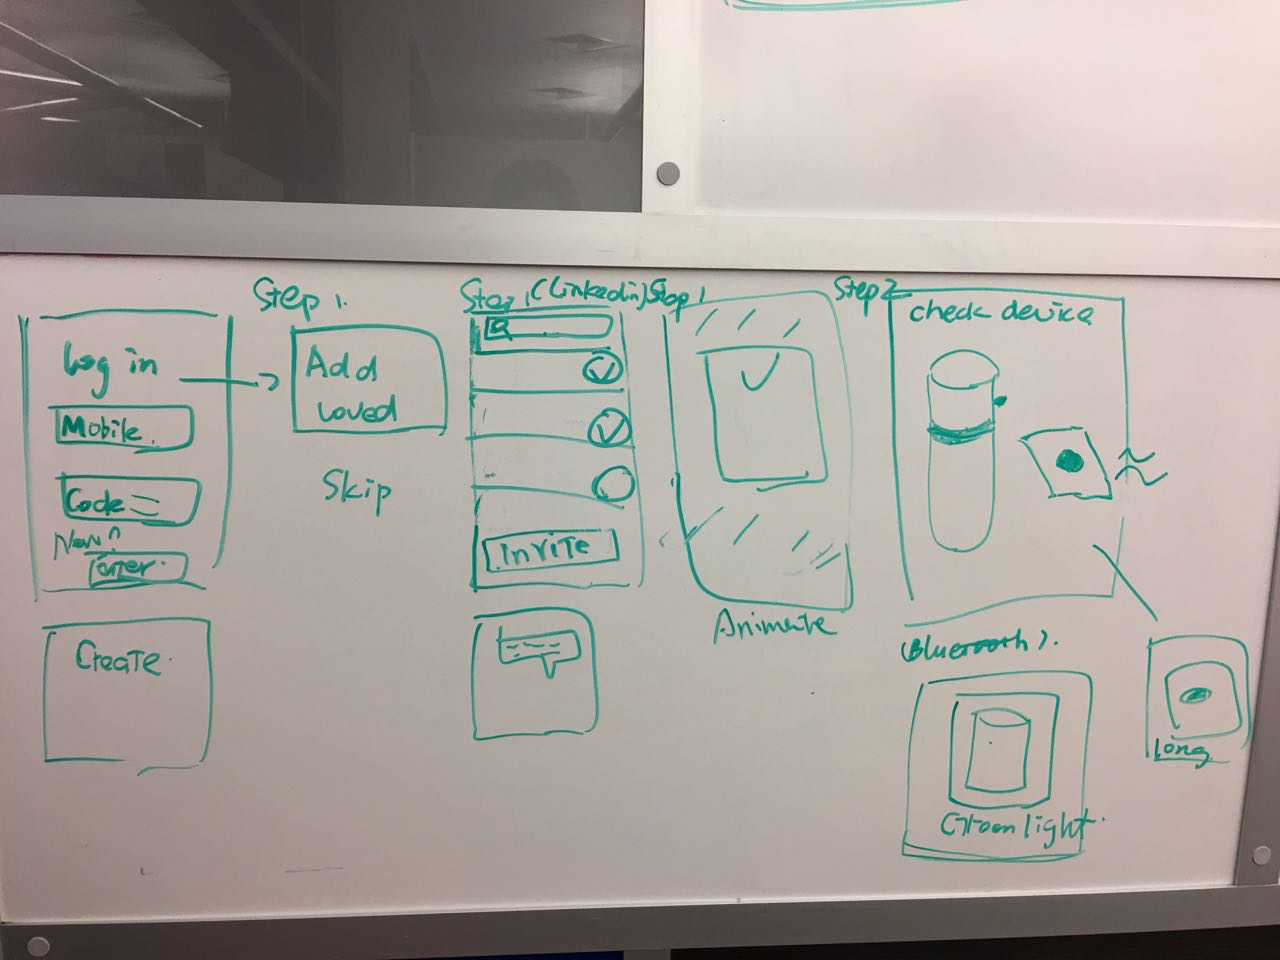 Log in
Mobile.
Code
Create.
Step 1.
Add
Loved
Skip
Step 1 (Linkedin)
INVITE
Step 1
Animate
Step 2
check device
(Bluetooth).
light.
long